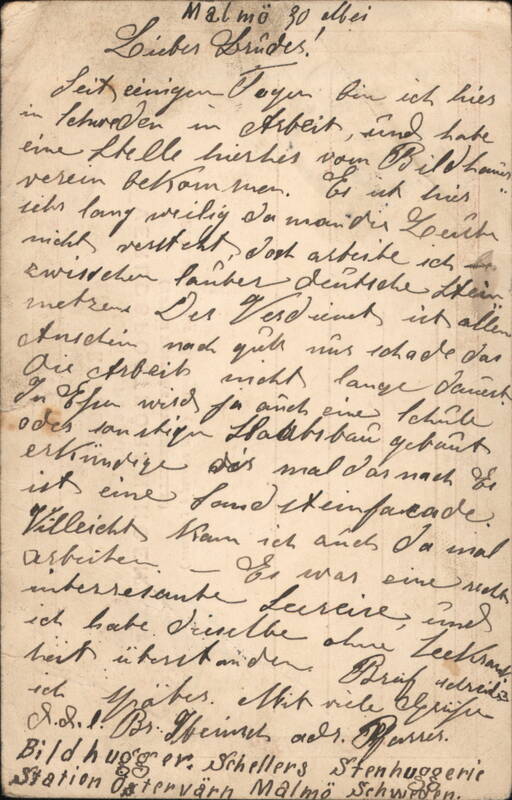 Malmö 30 Mei
Lieber Brüder!
Seit einigen Tagen bin ich hier
in Schweden in Arbeit, und habe
eine Stelle hierher vom Bildhauer-
verein bekommen. Es ist hier
sehr lang weilig da man die Leute
nicht versteht, doch arbeite ich
zwischen lauter deutsche Stein-
metzen. Der Verdienst ist allem
Anschein nach gut nur schade das
die Arbeit nicht lange dauert.
In Essen wird ja auch eine Schule
oder sonstigen Staatsbau gebaut
erkündige dir mal darnach Es
ist eine Sandsteinfacade.
Villeicht kann ich auch da mal
arbeiten. — Es war eine recht
interresante Seereise, und
ich habe dieselbe ohne Seekrank
heit überstanden. Brief schreibe
ich später. Mit viele Grüße
Br. Heinrich adr.
Bildhugger. Schellers Stenhuggerie
Station Östervärn Malmö Schweden.